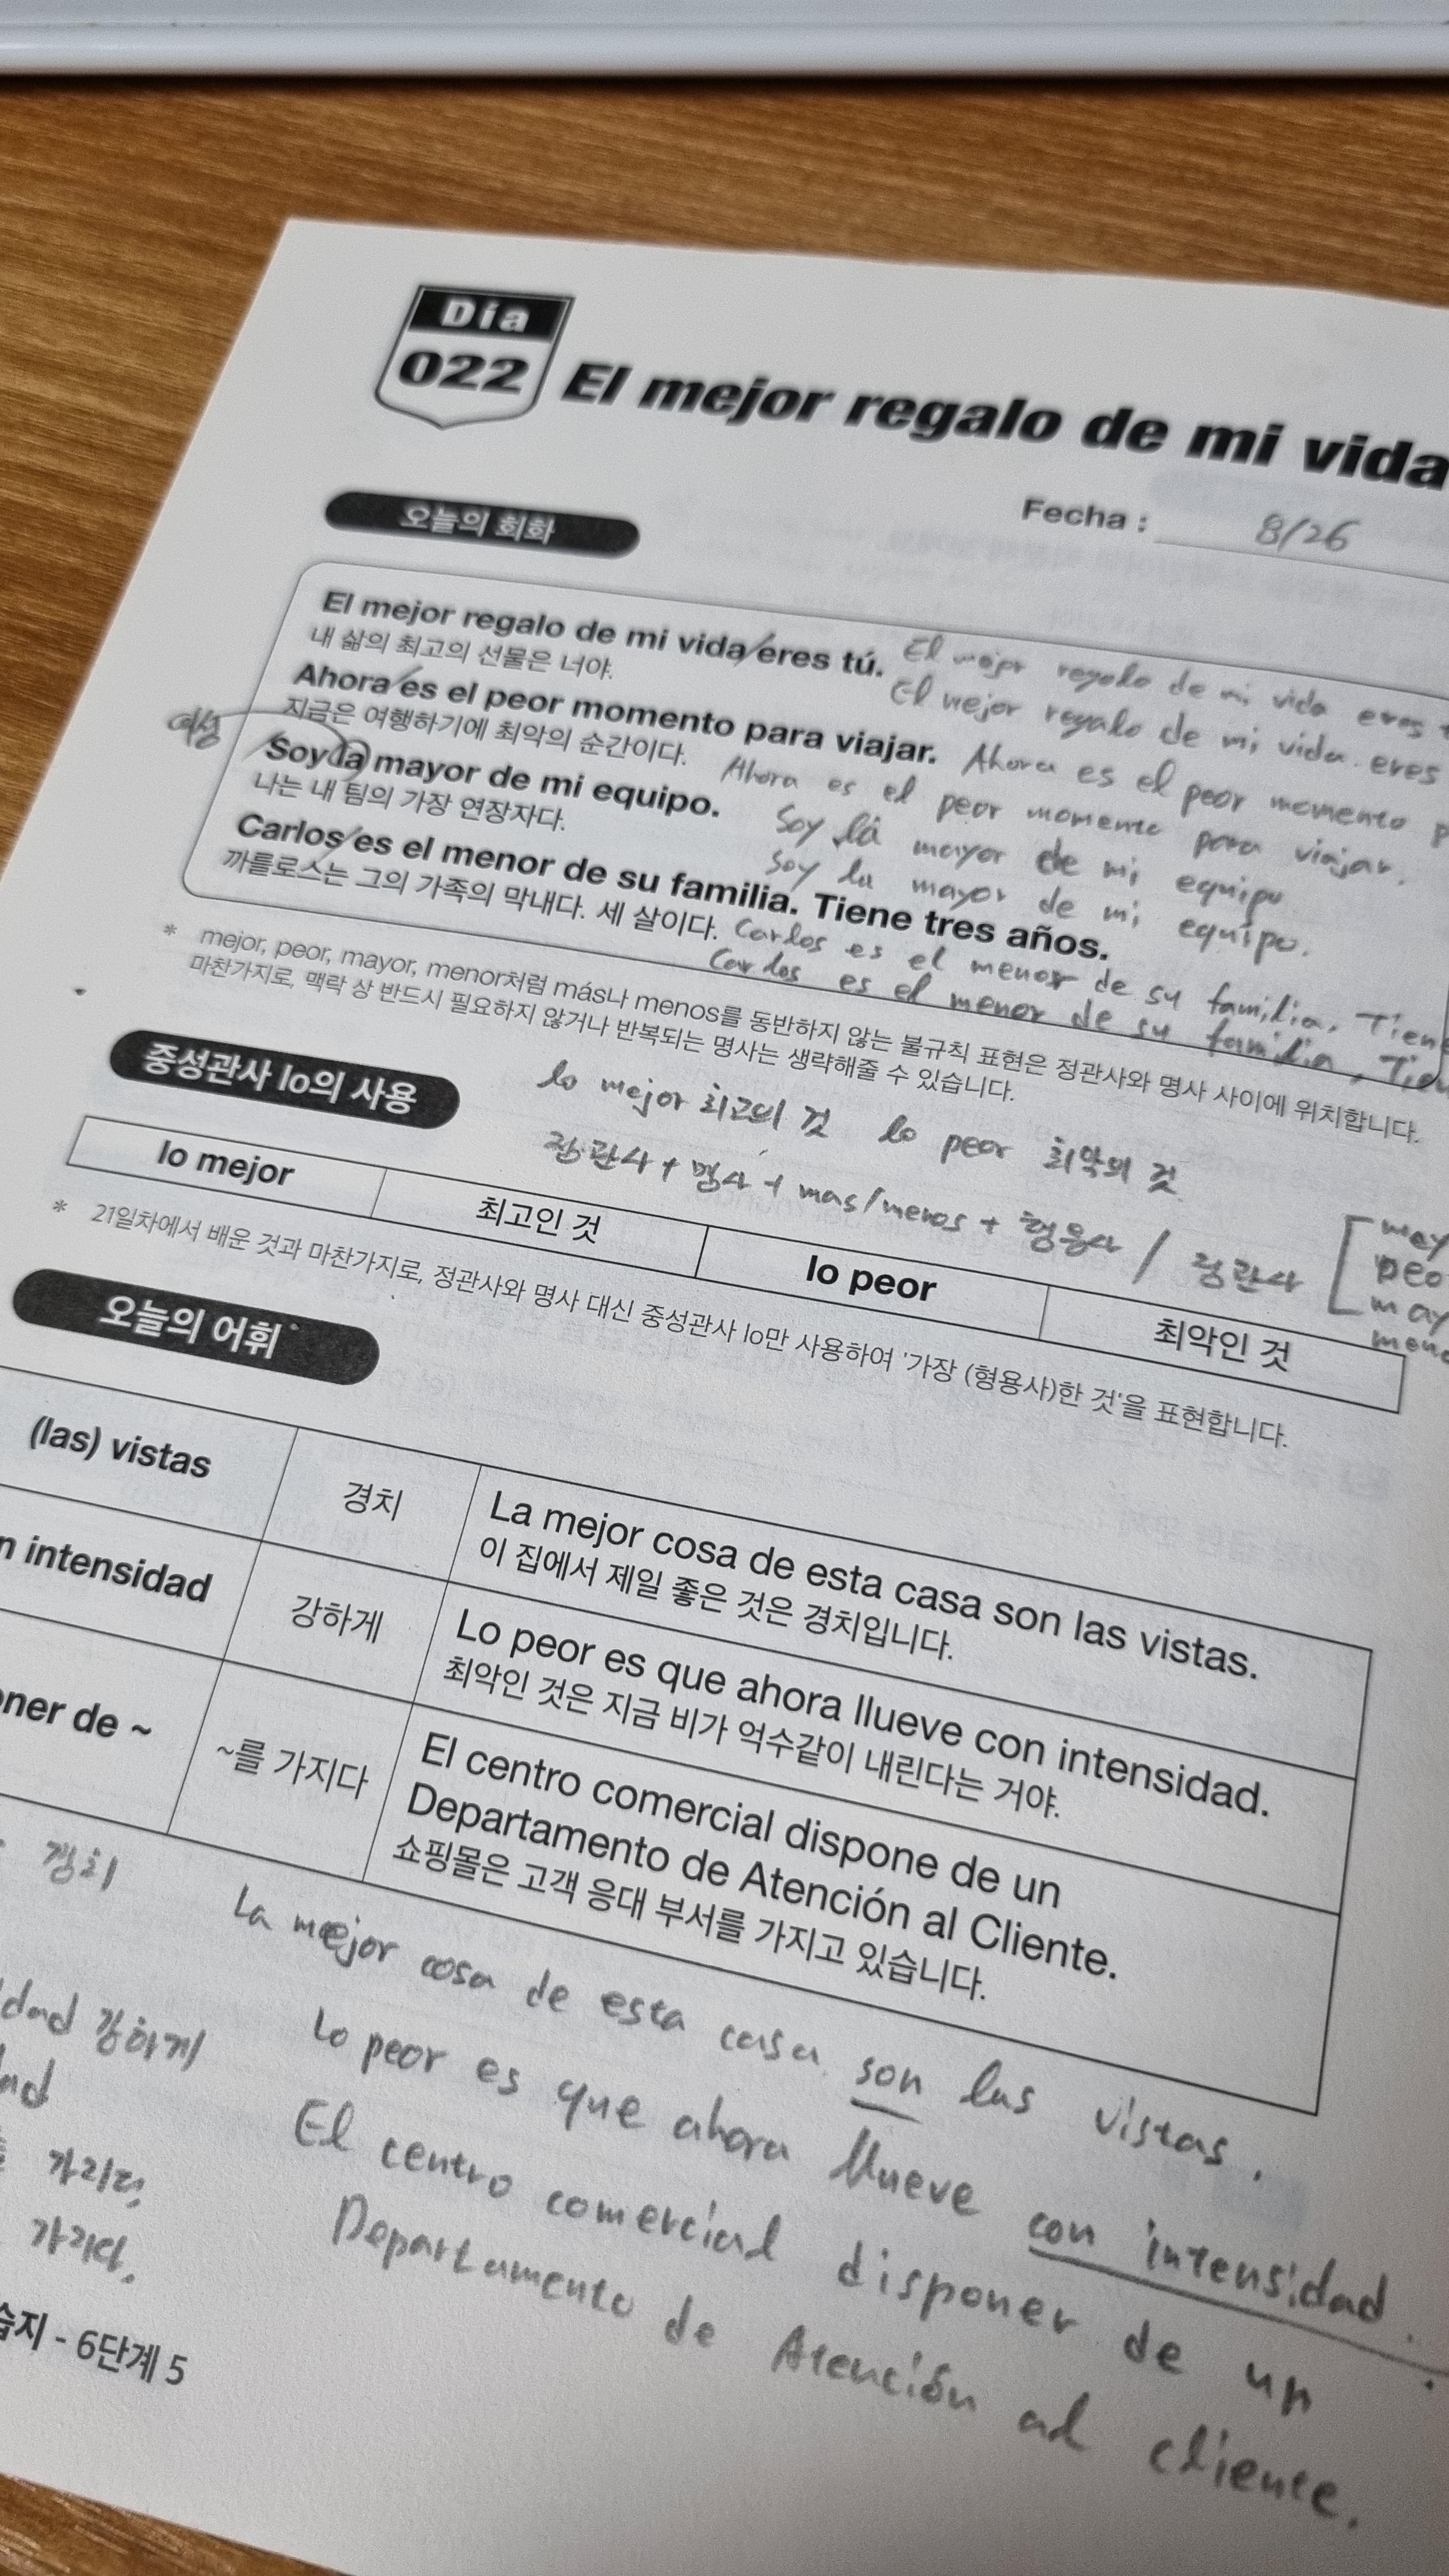 Día
022
El mejor regalo de mi vida
Fecha : 8/26
오늘의 회화
El mejor regalo de mi vida eres tú. El mejor regalo de mi vida eres
내 삶의 최고의 선물은 너야. El mejor regalo de mi vida. eres
Ahora es el peor momento para viajar. Ahora es el peor momento
지금은 여행하기에 최악의 순간이다. Ahora es el peor momento para viajar.
여성
Soy la mayor de mi equipo. Soy la mayor de mi equipo.
나는 내 팀의 가장 연장자다. Soy la mayor de mi equipo.
Carlos es el menor de su familia. Tiene tres años.
까를로스는 그의 가족의 막내다. 세 살이다. Carlos es el menor de su familia, Tiene
Carlos es el menor de su familia,
* mejor, peor, mayor, menor처럼 más나 menos를 동반하지 않는 불규칙 표현은 정관사와 명사 사이에 위치합니다.
마찬가지로, 맥락 상 반드시 필요하지 않거나 반복되는 명사는 생략해줄 수 있습니다.
중성관사 lo의 사용
lo mejor 최고의 것 lo peor 최악의 것
정관사 + 명사 + mas/menos + 형용사 / 정관사
lo mejor 최고인 것 lo peor 최악인 것
* 21일차에서 배운 것과 마찬가지로, 정관사와 명사 대신 중성관사 lo만 사용하여 '가장 (형용사)한 것'을 표현합니다.
오늘의 어휘
(las) vistas 경치 La mejor cosa de esta casa son las vistas.
이 집에서 제일 좋은 것은 경치입니다.
intensidad 강하게 Lo peor es que ahora llueve con intensidad.
최악인 것은 지금 비가 억수같이 내린다는 거야.
de ~ ~를 가지다 El centro comercial dispone de un
Departamento de Atención al Cliente.
쇼핑몰은 고객 응대 부서를 가지고 있습니다.
경치 La mejor cosa de esta casa son las vistas.
강하게 Lo peor es que ahora llueve con intensidad.
가지다, El centro comercial disponer de un
가지다, Departamento de Atención al cliente.
- 6단계 5